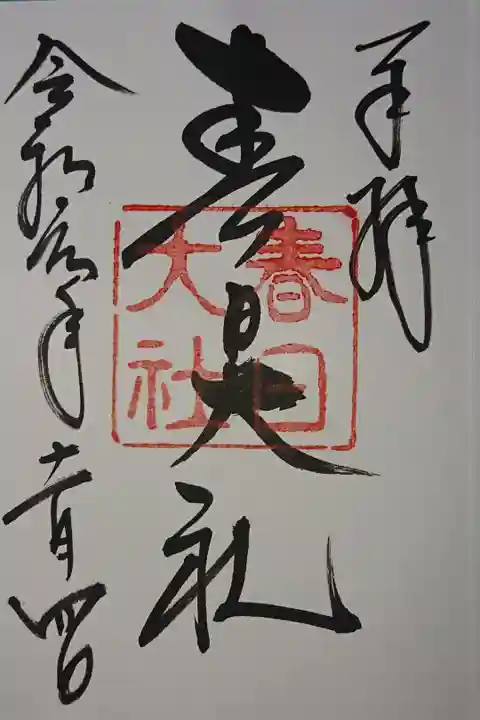 奉拝
春日大社
春日
大社
令和元年十一月四日